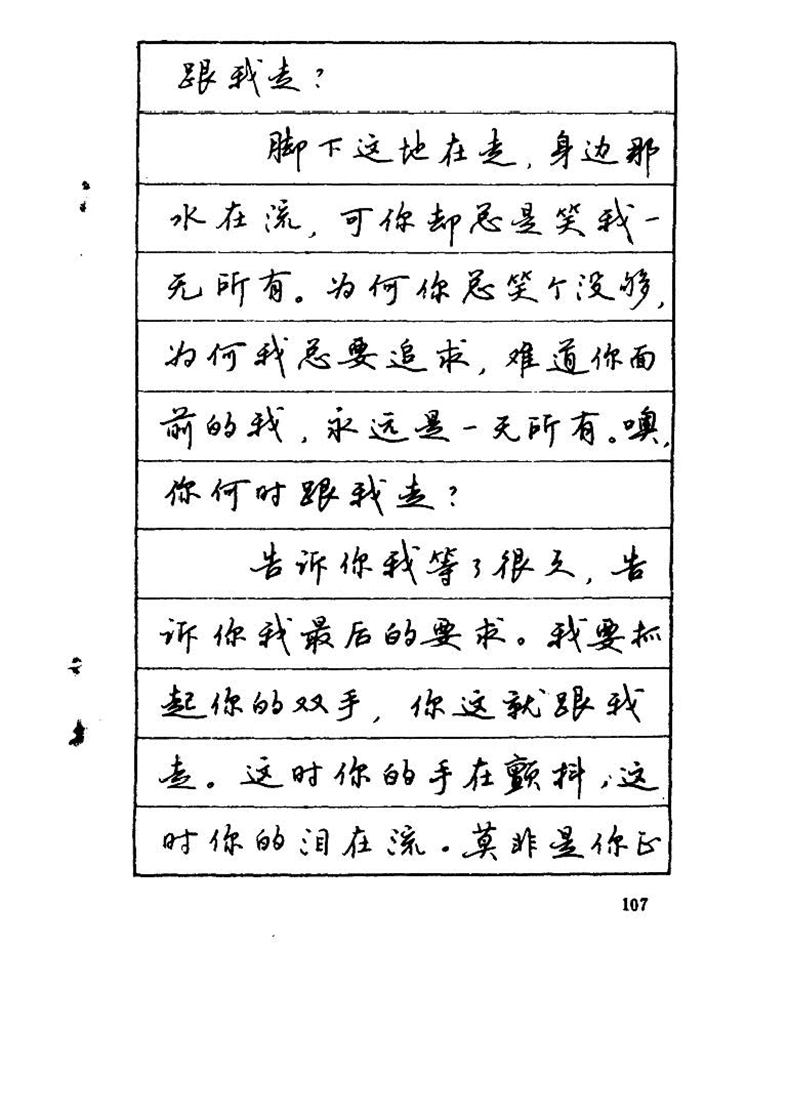 跟我走？
脚下这地在走，身边那
水在流，可你却总是笑我一
无所有。为何你总笑个没够，
为何我总要追求，难道你面
前的我，永远是一无所有。噢，
你何时跟我走？
告诉你我等了很久，告
诉你我最后的要求。我要抓
起你的双手，你这就跟我
走。这时你的手在颤抖，这
时你的泪在流。莫非是你正
107